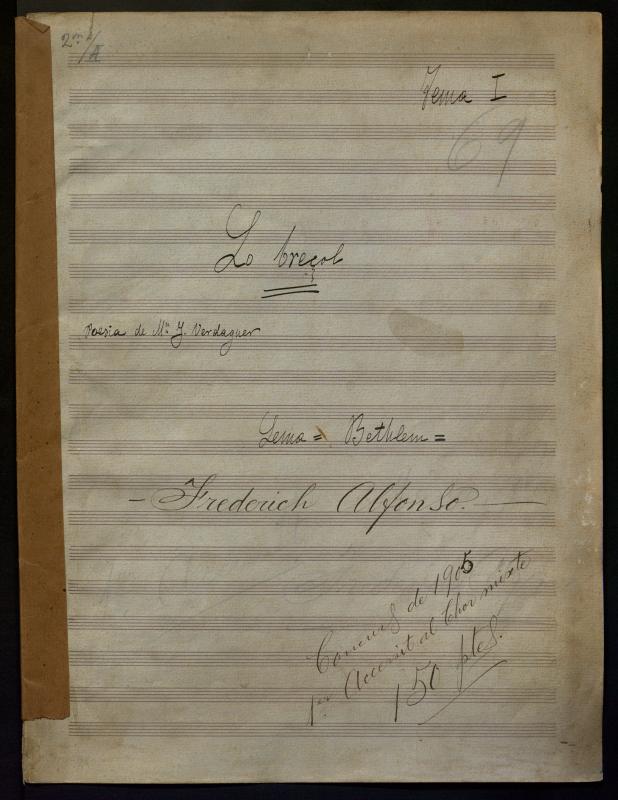 2on A
Tema I
69
Lo breçol
Poesia de Mn J. Verdaguer
Lema = Bethlem =
- Frederich Alfonso. -
Concurs de 1905
1er Accessit al Chor mixte
150 ptes.